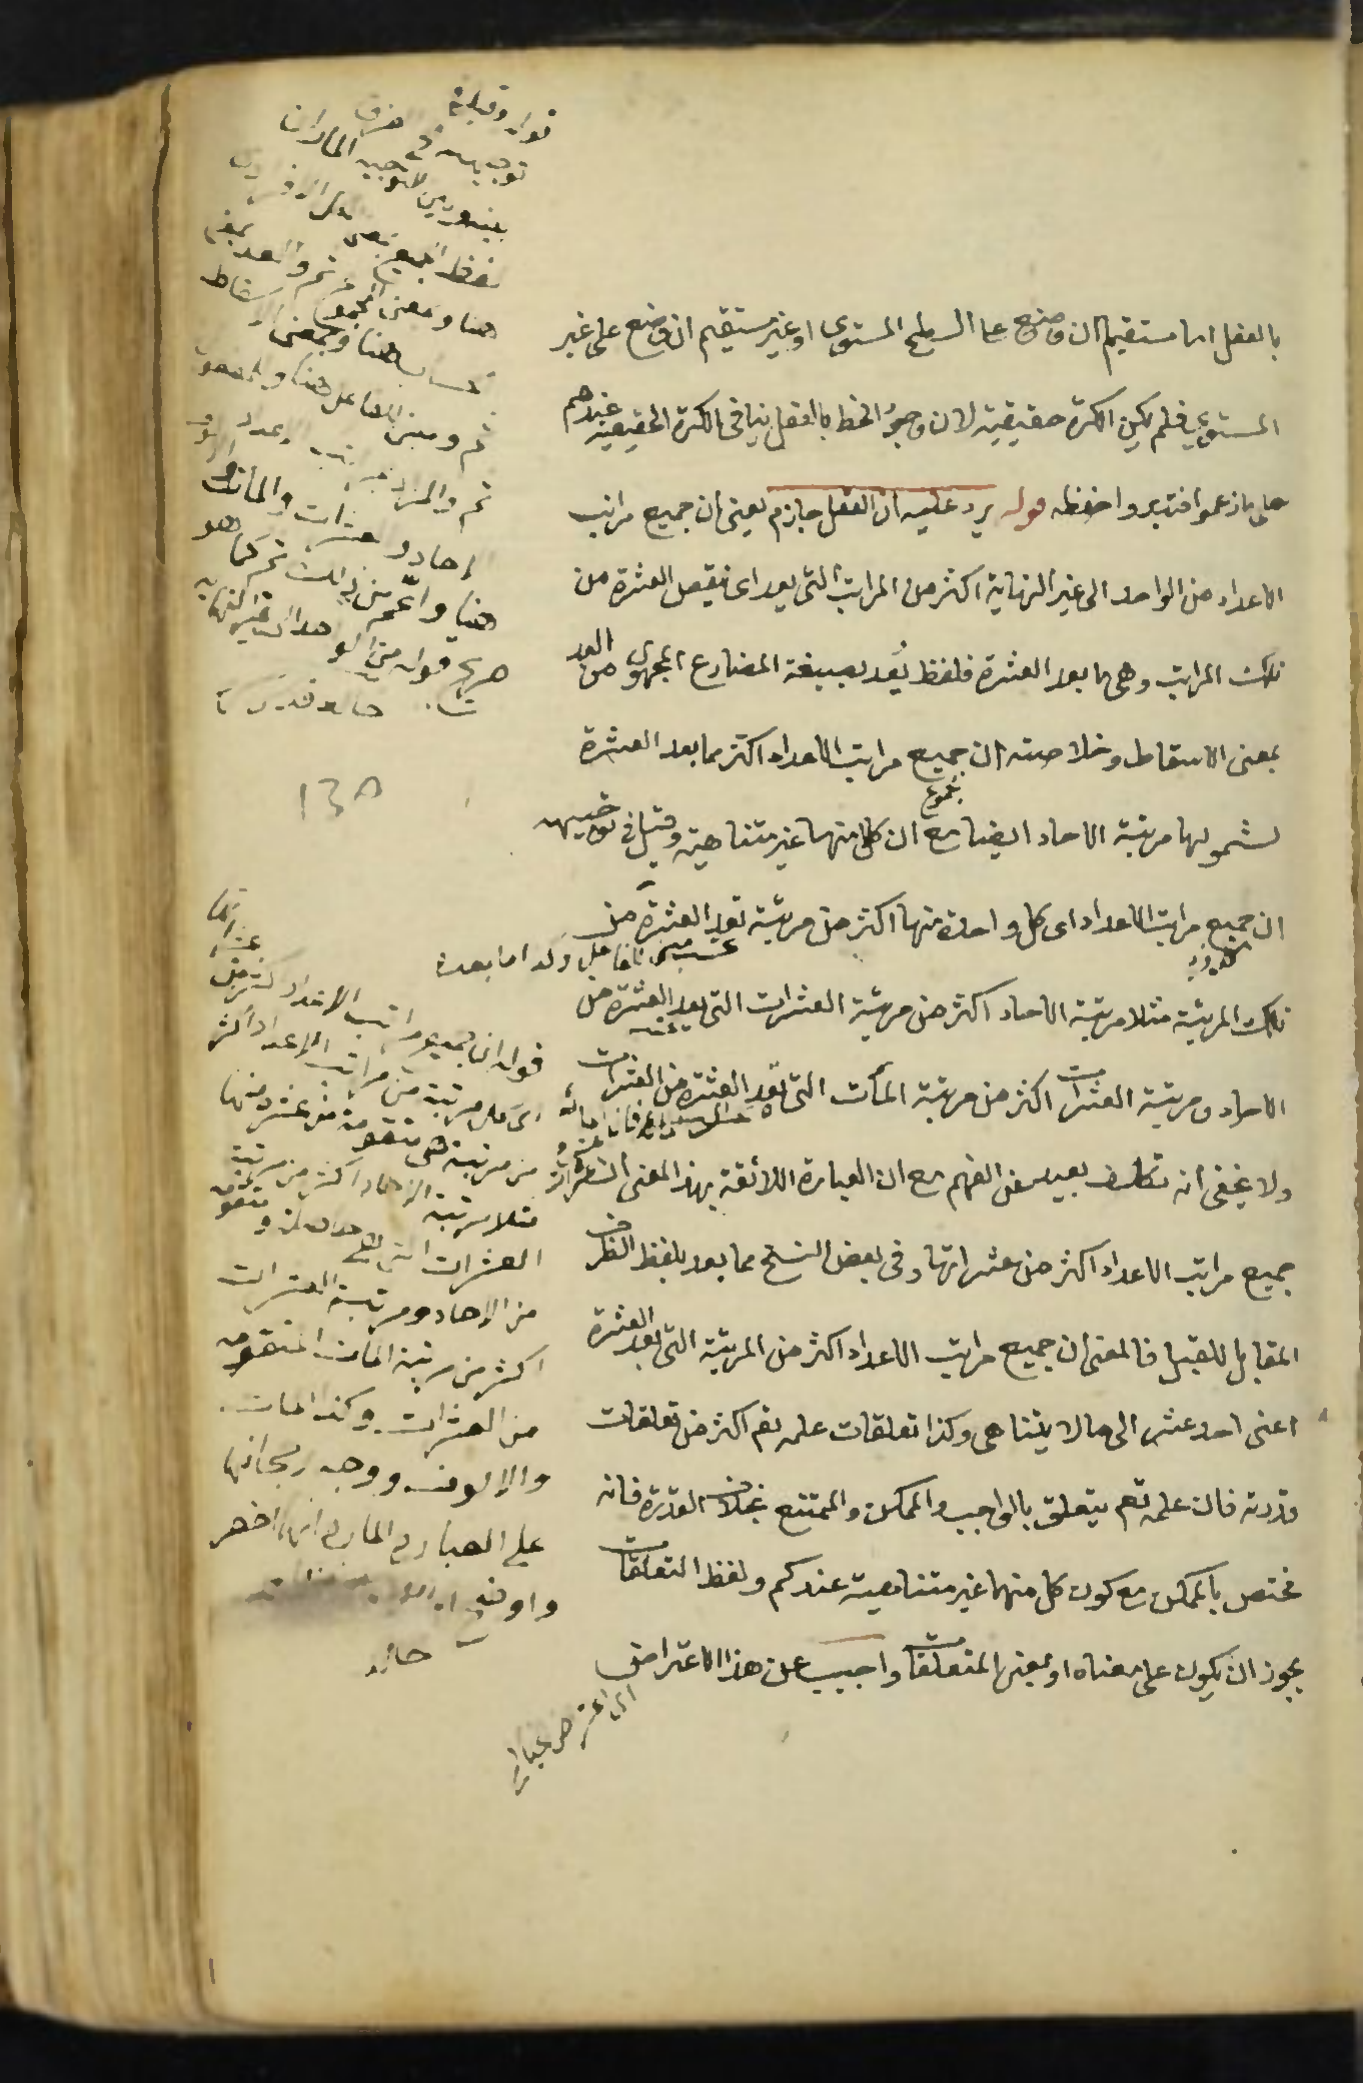 بالفعل اما مستقيم ان وضع على السطح المستوى او غير مستقيم ان وضع على غير
المستوى فلم يكن الكرة حقيقية لان وجود الخط بالفعل ينافى الكرة الحقيقية عندهم
على ما زعموا فتدبر واحفظه قوله يرد عليه ان العقل جازم يعنى ان جميع مراتب
الاعداد من الواحد الى غير النهاية اكثر من المراتب التى يعد اى ينقص العشرة من
تلك المراتب وهى ما بعد العشرة فلفظ يُعد بصيغة المضارع المجهول من العد
بمعنى الاسقاط وخلاصته ان جميع مراتب الاعداد اكثر مما بعد العشرة
لشمولها مرتبة الاحاد ايضا مع ان كلا منهما غير متناهية وقيل فى توجيهه
ان جميع مراتب الاعداد اى كل واحدة منها اكثر من مرتبة تعد العشرة من
تلك المرتبة مثلا مرتبة الاحاد اكثر من مرتبة العشرات التى يعد العشرة من
الاحاد ومرتبة العشرات اكثر من مرتبة المآت التى تعد العشرة من العشرات
ولا يخفى انه تكلف بعيد عن الفهم مع ان العبارة اللائقة بهذا المعنى ان
جميع مراتب الاعداد اكثر من عشراتها وفى بعض النسخ مما بعد بلفظ الظرف
المقابل للقبل فالمعنى ان جميع مراتب الاعداد اكثر من المرتبة التى بعد العشرة
اعنى احد عشر الى ما لا يتناهى وكذا تعلقات علمه تع اكثر من تعلقات
قدرته فان علمه تع يتعلق بالواجب والممكن والممتنع بخلاف القدرة فانه
مختص بالممكن مع كون كل منهما غير متناهية عندكم ولفظ التعلقات
يجوز ان يكون على معناه او بمعنى المتعلقات واجيب عن هذا الاعتراض
قوله وقيل فى
توجيهه
لفظ الجميع
هنا وبمعنى المجموع ثم والعد بمعنى
هنا وبمعنى الاسقاط
ثم ومبنى للفاعل هنا
ثم والمراد
احاد وعشرات والمآت
هنا واعم من ذلك ثم كما هو
صريح قوله من الواحد الى غير النهاية
١٣٥
قوله ان جميع مراتب الاعداد
اى كل مرتبة من مراتب الاعداد اكثر
من مرتبة هى متقومة من عشر منها
مثلا مرتبة الاحاد اكثر من مرتبة
العشرات التى هى حاصلة ومتقومة
من الاحاد ومرتبة العشرات
اكثر من مرتبة المآت المتقومة
من العشرات وكذا المآت
والالوف ووجه رجحانها
على العبارة المارة انها اخصر
واوضح